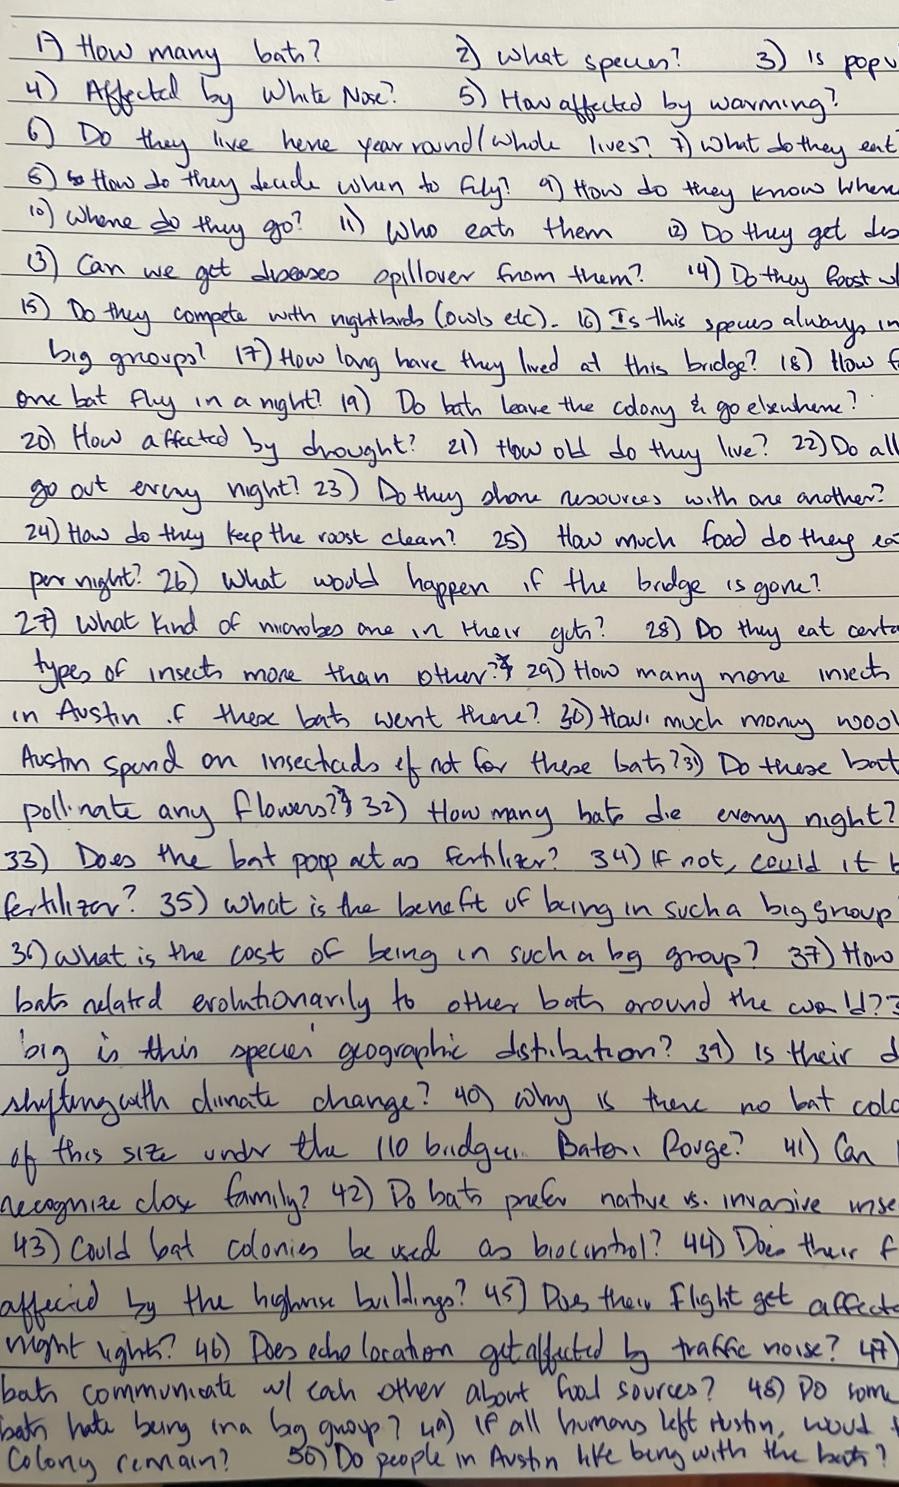 1) How many bats? 2) What species? 3) Is popu
4) Affected by White Nose? 5) How affected by warming?
6) Do they live here year round/whole lives? 7) What do they eat
8) How do they decide when to fly? 9) How do they know where
10) Where do they go? 11) Who eats them 12) Do they get dis
13) Can we get diseases spillover from them? 14) Do they Roost w
15) Do they compete with nightbirds (owls etc). 16) Is this species always in
big groups? 17) How long have they lived at this bridge? 18) How f
one bat fly in a night? 19) Do bats leave the colony & go elsewhere?
20) How affected by drought? 21) How old do they live? 22) Do all
go out every night? 23) Do they share resources with one another?
24) How do they keep the roost clean? 25) How much food do they ea
per night? 26) What would happen if the bridge is gone?
27) What kind of microbes are in their guts? 28) Do they eat certa
types of insects more than other? 29) How many more insects
in Austin if these bats went there? 30) How much money wool
Austin spend on insecticids if not for these bats? 31) Do these bat
pollinate any flowers? 32) How many bats die every night?
33) Does the bat poop act as fertilizer? 34) If not, could it b
fertilizer? 35) What is the benefit of being in such a big group
36) What is the cost of being in such a big group? 37) How
bats related evolutionarily to other bats around the world? 3
big is this species' geographic distribution? 39) Is their d
shifting with climate change? 40) Why is there no bat colo
of this size under the 110 bridge in Baton Rouge? 41) Can
recognize close family? 42) Do bats prefer native vs. invasive inse
43) Could bat colonies be used as biocontrol? 44) Does their f
affected by the highrise buildings? 45) Does their flight get affecte
night lights? 46) Does echolocation get affected by traffic noise? 47)
bats communicate w/ each other about food sources? 48) Do some
bats hate being in a big group? 49) If all humans left Austin, would t
Colony remain? 50) Do people in Austin like being with the bats?